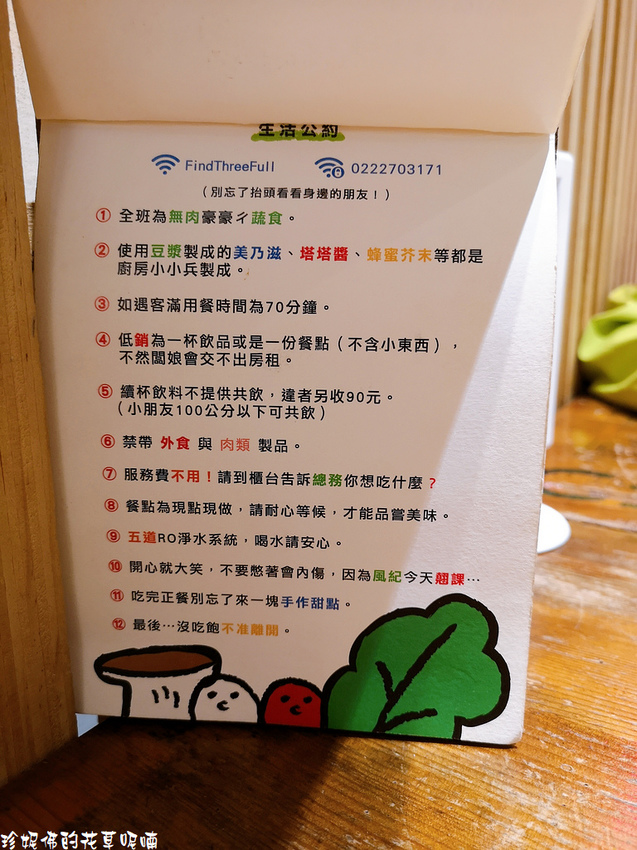 生活公約
FindThreeFull 0222703171
（別忘了抬頭看看身邊的朋友！）
① 全班為無肉豪豪ㄔ蔬食。
② 使用豆漿製成的美乃滋、塔塔醬、蜂蜜芥末等都是
廚房小小兵製成。
③ 如遇客滿用餐時間為70分鐘。
④ 低銷為一杯飲品或是一份餐點（不含小東西），
不然闆娘會交不出房租。
⑤ 續杯飲料不提供共飲，違者另收90元。
（小朋友100公分以下可共飲）
⑥ 禁帶 外食 與 肉類 製品。
⑦ 服務費不用！請到櫃台告訴總務你想吃什麼？
⑧ 餐點為現點現做，請耐心等候，才能品嘗美味。
⑨ 五道RO淨水系統，喝水請安心。
⑩ 開心就大笑，不要憋著會內傷，因為風紀今天翹課…
⑪ 吃完正餐別忘了來一塊手作甜點。
⑫ 最後…沒吃飽不准離開。
珍妮佛的花草呢喃